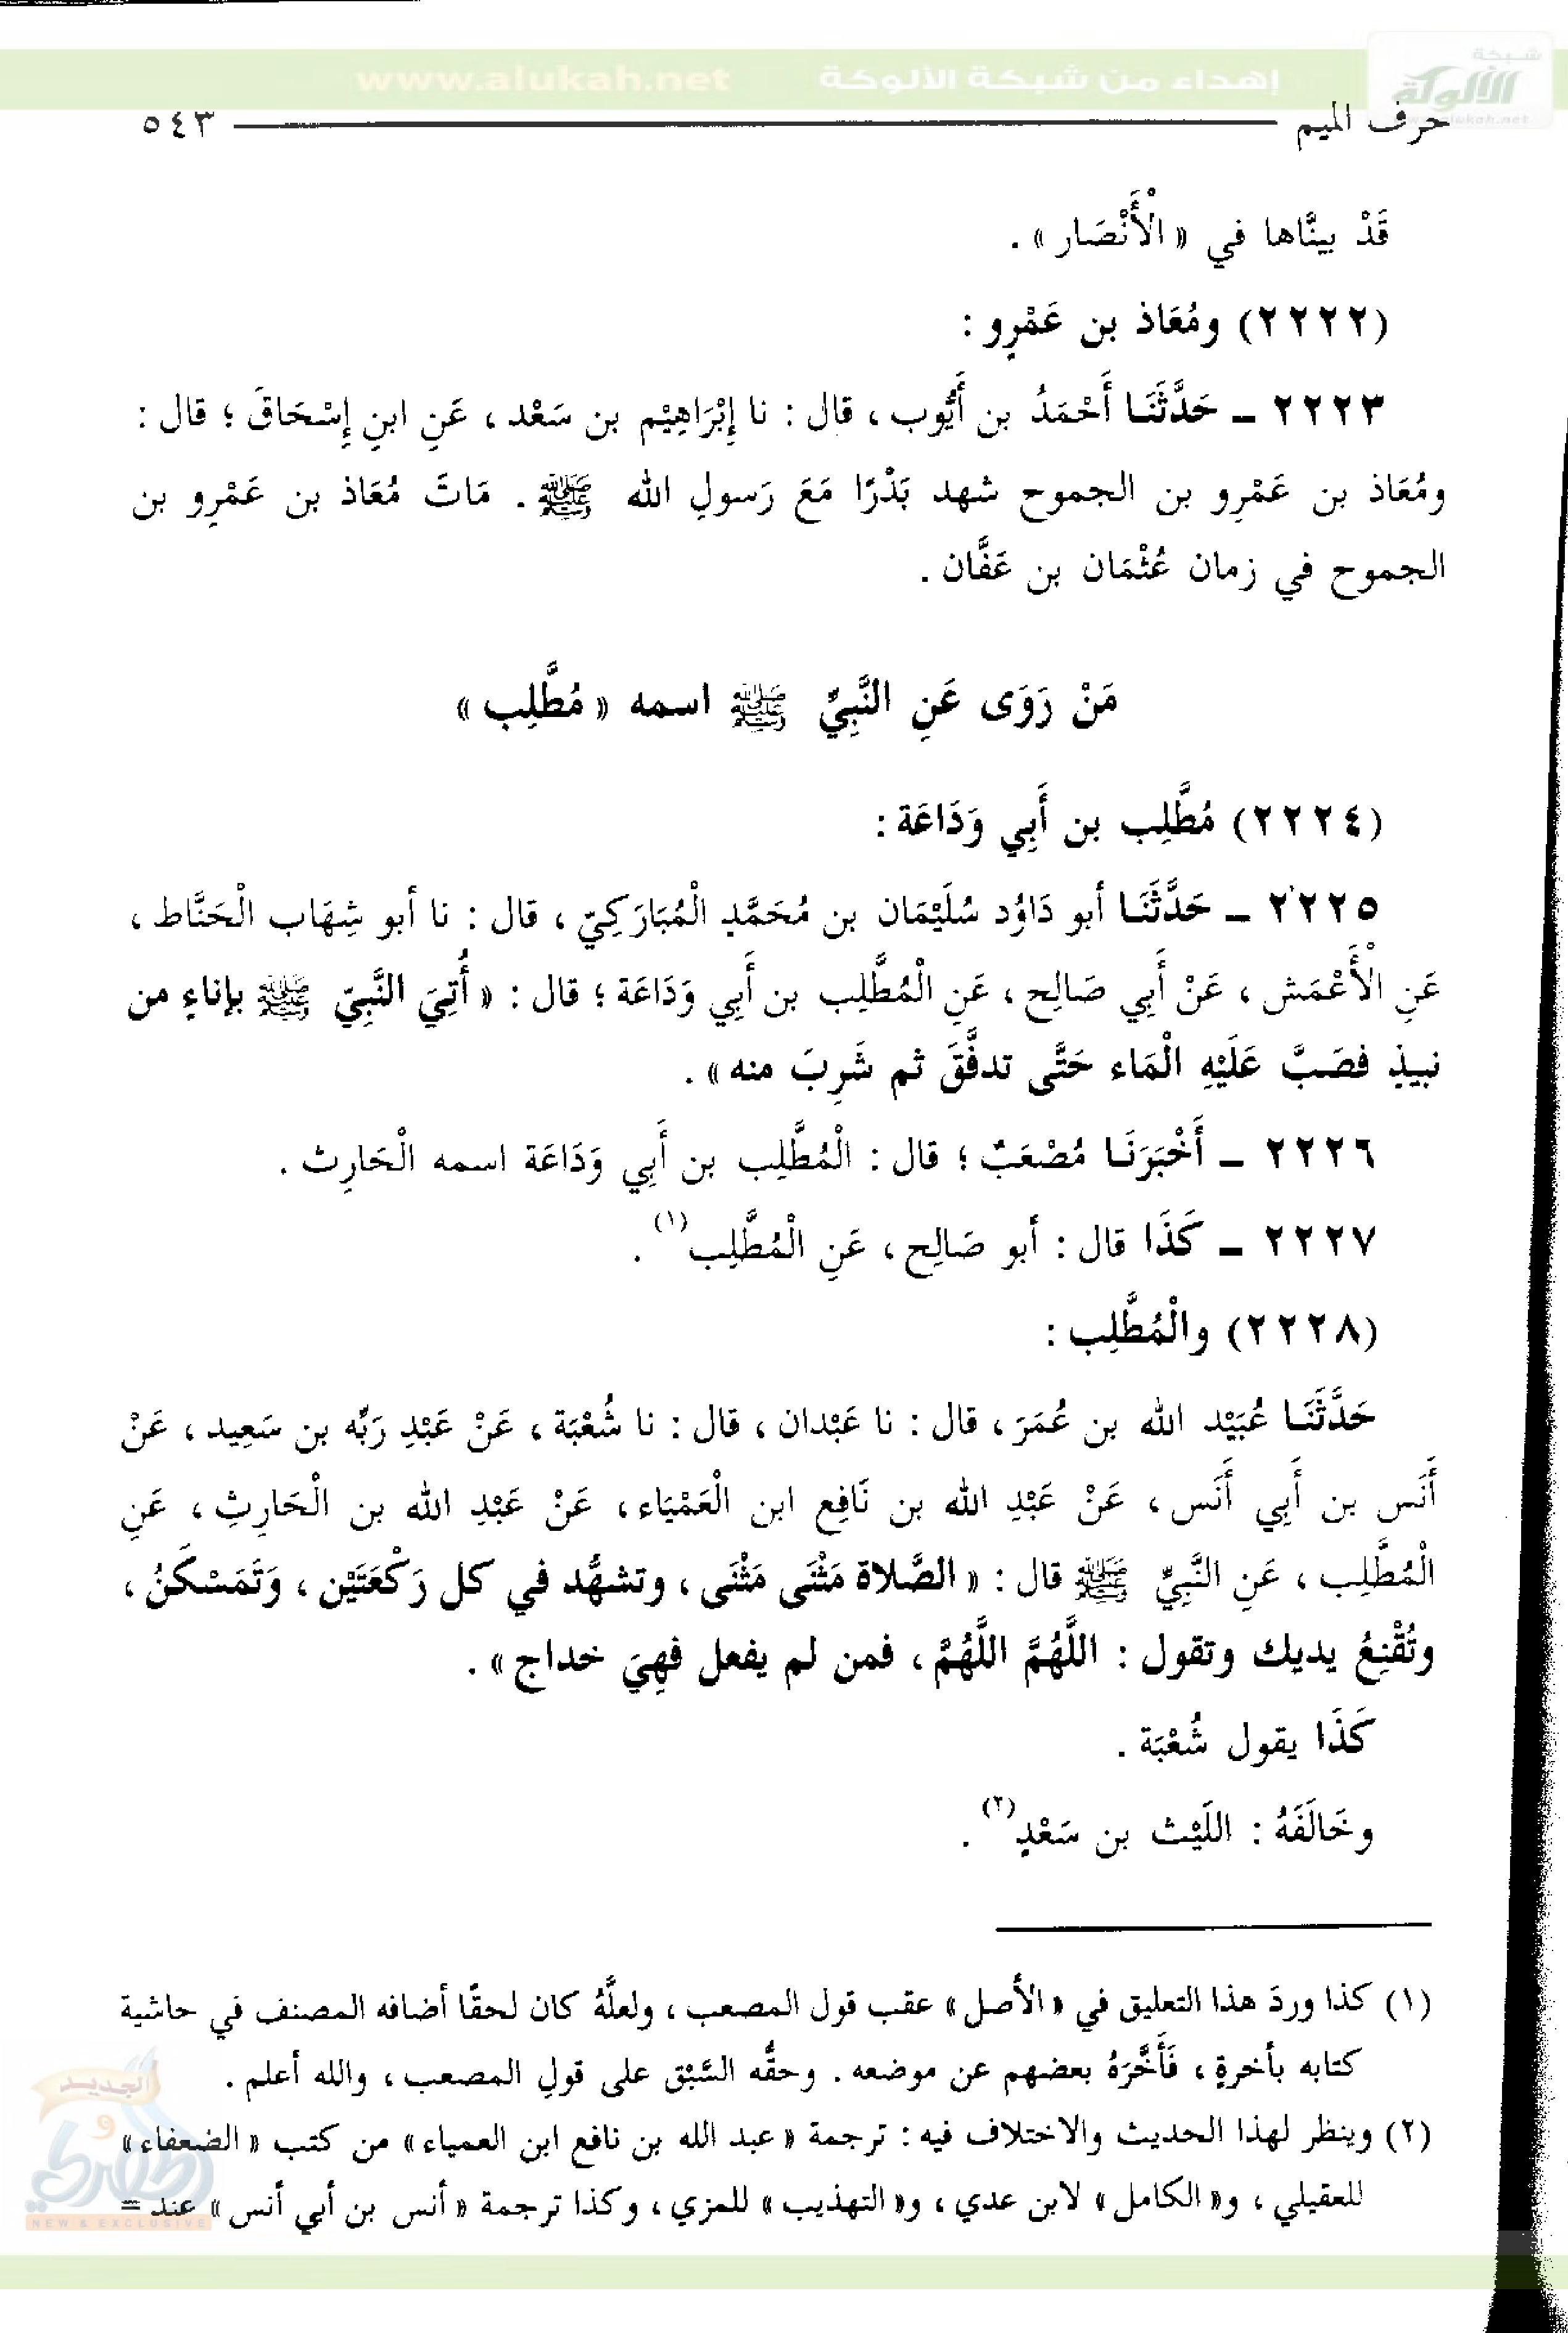 شبكة
الألوكة
www.alukah.net
إهداء من شبكة الألوكة
www.alukah.net
حرف الميم ٥٤٣
قَدْ بينَّاها في « الْأَنْصَار » .
(٢٢٢٢) ومُعَاذ بن عَمْرِو :
٢٢٢٣ ــ حَدَّثَنَا أَحْمَدُ بن أَيُّوب ، قال : نا إِبْرَاهِيْم بن سَعْد ، عَنِ ابنِ إِسْحَاقَ ؛ قال :
ومُعَاذ بن عَمْرِو بن الجموح شهد بَدْرًا مَعَ رَسولِ الله ﷺ . مَاتَ مُعَاذ بن عَمْرِو بن
الجموح في زمان عُثْمَان بن عَفَّان .
مَنْ رَوَى عَنِ النَّبِيِّ ﷺ اسمه « مُطَّلِب »
(٢٢٢٤) مُطَّلِب بن أَبِي وَدَاعَة :
٢٢٢٥ ــ حَدَّثَنَا أبو دَاوُد سُلَيْمَان بن مُحَمَّدٍ الْمُبَارَكِيّ ، قال : نا أبو شِهَاب الْحَنَّاط ،
عَنِ الْأَعْمَش ، عَنْ أَبِي صَالِح ، عَنِ الْمُطَّلِب بن أَبِي وَدَاعَة ؛ قال : « أُتِيَ النَّبِيّ ﷺ بإناءٍ من
نبيذٍ فصَبَّ عَلَيْهِ الْمَاء حَتَّى تدفَّقَ ثم شَرِبَ منه » .
٢٢٢٦ ــ أَخْبَرَنَا مُصْعَبٌ ؛ قال : الْمُطَّلِب بن أَبِي وَدَاعَة اسمه الْحَارِث .
٢٢٢٧ ــ كَذَا قال : أبو صَالِح ، عَنِ الْمُطَّلِب (١) .
(٢٢٢٨) والْمُطَّلِب :
حَدَّثَنَا عُبَيْد الله بن عُمَرَ ، قال : نا عَبْدان ، قال : نا شُعْبَة ، عَنْ عَبْدِ رَبِّه بن سَعِيد ، عَنْ
أَنَس بن أَبِي أَنَس ، عَنْ عَبْدِ الله بن نَافِع ابن الْعَمْيَاء ، عَنْ عَبْدِ الله بن الْحَارِثِ ، عَنِ
الْمُطَّلِب ، عَنِ النَّبِيِّ ﷺ قال : « الصَّلاة مَثْنَى مَثْنَى ، وتشهُّد في كل رَكْعَتَيْن ، وَتَمَسْكَنُ ،
وتُقْنِعُ يديك وتقول : اللَّهُمَّ اللَّهُمَّ ، فمن لم يفعل فهِيَ خداج » .
كَذَا يقول شُعْبَة .
وخَالَفَهُ : اللَيْث بن سَعْدٍ (٢) .
(١) كذا وردَ هذا التعليق في « الأصل » عقب قول المصعب ، ولعلَّهُ كان لحقًا أضافه المصنف في حاشية
كتابه بأخرةٍ ، فَأَخَّرَهُ بعضهم عن موضعه . وحقُّه السَّبْق على قولِ المصعب ، والله أعلم .
(٢) وينظر لهذا الحديث والاختلاف فيه : ترجمة « عبد الله بن نافع ابن العمياء » من كتب « الضعفاء »
للعقيلي ، و« الكامل » لابن عدي ، و« التهذيب » للمزي ، وكذا ترجمة « أنس بن أبي أنس » عند =
الجديد
و
الحصري
NEW & EXCLUSIVE